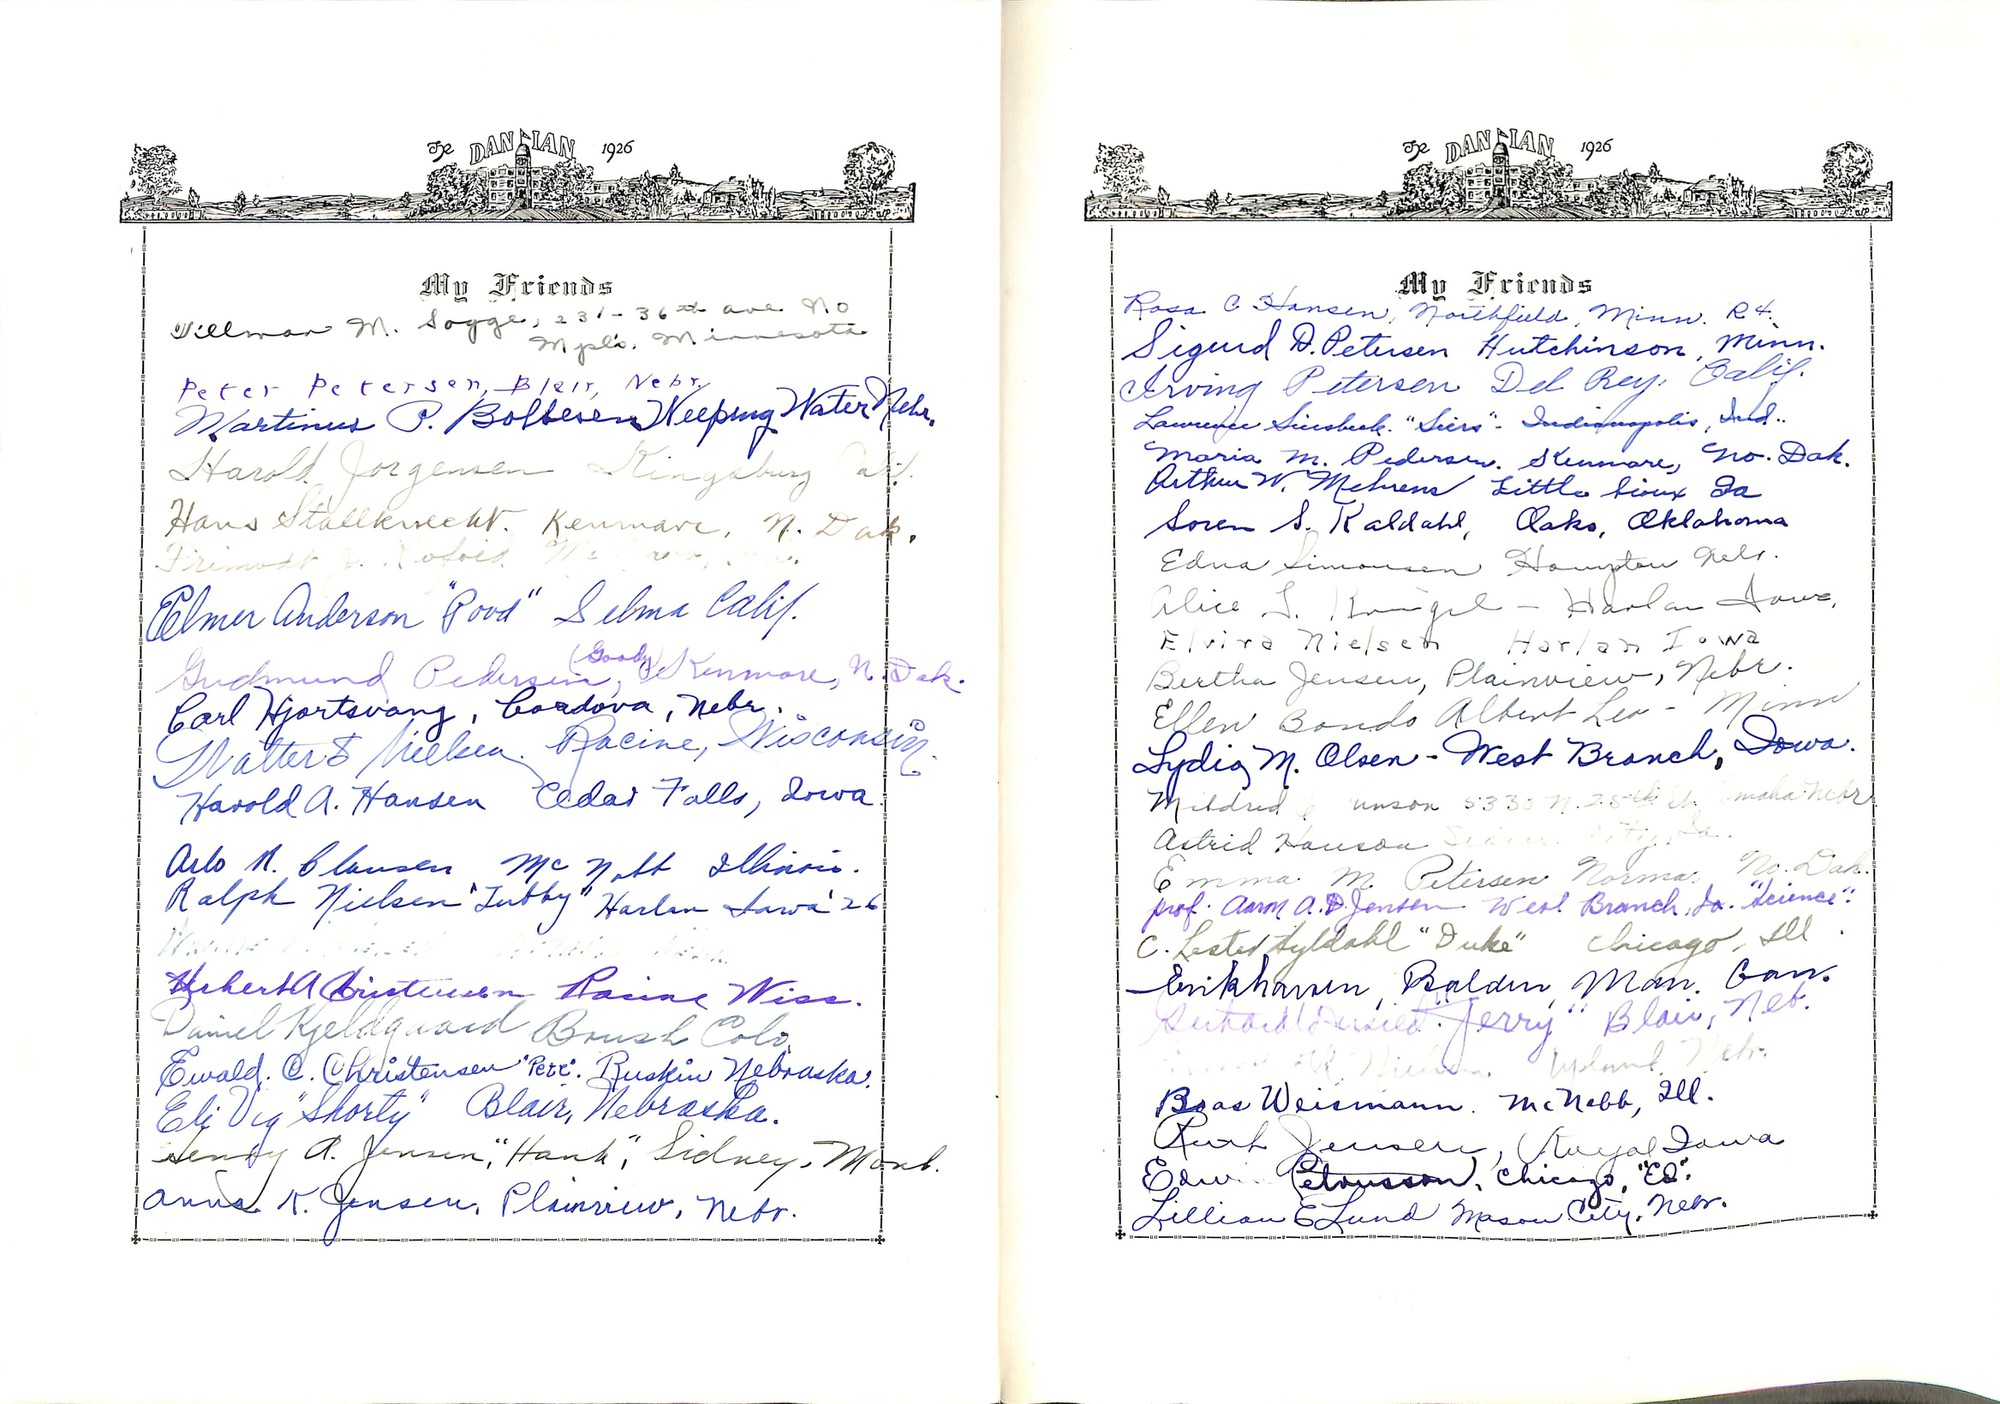 The DANIAN 1926
My Friends
Tillman M. Sogge, 231-36th ave No
Mpls. Minnesota
Peter Petersen, Blair, Nebr.
Martinus P. Boltesen Weeping Water Nebr.
Harold Jorgensen Kingsburg Calif.
Hans Stallknecht. Kenmare, N. Dak.
Elmer Anderson "Pood" Selma Calif.
(Goody)
Gudmund Pedersen, Kenmare, N. Dak.
Carl Hjortsvang, Cordova, Nebr.
Walter S Nielsen. Racine, Wisconsin.
Harold A. Hansen Cedar Falls, Iowa
Arlo R. Clausen Mc Nabb Illinois.
Ralph Nielsen "Tubby" Harlan Iowa '26
Herbert A Cristensen Racine Wiss.
Daniel Kjeldgaard Brush Colo.
Ewald. C. Christensen "Pete". Ruskin Nebraska.
Eli Vig "Shorty" Blair, Nebraska.
Henry A. Jensen, "Hank", Sidney, Mont.
Anna K. Jensen, Plainview, Nebr.
The DANIAN 1926
My Friends
Rosa C Hansen, Northfield, Minn. R4.
Sigurd D. Petersen Hutchinson, Minn.
Irving Petersen Del Rey, Calif.
Lawrence Siersbeck. "Siers" - Indianapolis, Ind..
Maria M. Pedersen. Kenmare, No. Dak.
Arthur W. Mehrens Little Sioux Ia
Soren S. Kaldahl, Oaks, Oklahoma
Edna Simonsen Hampton Nebr.
Alice L. Krugel - Harlan Iowa,
Elvira Nielsen Harlan Iowa
Bertha Jensen, Plainview, Nebr.
Ellen Bondo Albert Lea - Minn
Lydia M. Olsen - West Branch, Iowa.
Mildred 5330 N. 25th St. Omaha Nebr
Astrid Hanson City, Ia.
Emma M. Petersen Norma. No. Dak.
prof. Aaron A. D. Jensen West Branch, Ia. "Science".
C. Lester Hyldahl "Duke" Chicago, Ill.
Erik hansen, Baldur, Man. Can.
"Jerry" Blair, Neb.
R. Nielsen Upland Nebr.
Boas Weismann. McNabb, Ill.
Ruth Jensen, Royal Iowa
Edwin Petersson, Chicago, "Ed".
Lillian E Lund Mason City, Nebr.